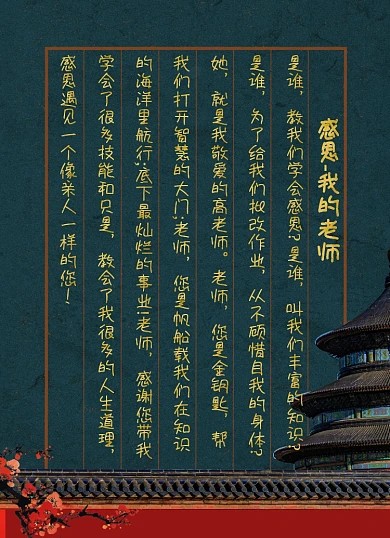 感恩-我的老师
是谁，教我们学会感恩？是谁，叫我们丰富的知识？
是谁，为了给我们批改作业，从不顾惜自我的身体？
她，就是我敬爱的高老师。老师，您是金钥匙，帮
我们打开智慧的大门；老师，您是帆船载我们在知识
的海洋里航行；底下最灿烂的事业！老师，感谢您带我
学会了很多技能和只是，教会了我很多的人生道理，
感恩遇见一个像亲人一样的您！